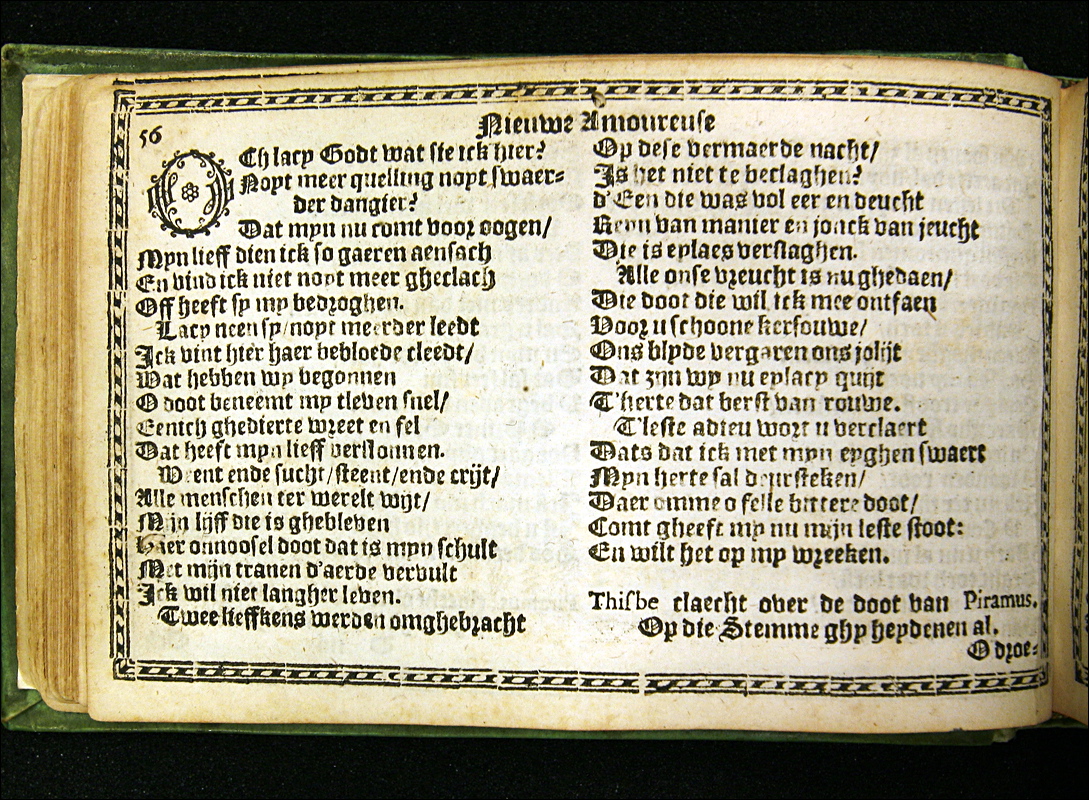 56
Nieuwe Amoureuse
OCh lacy Godt wat sie ick hier?
Noyt meer quelling noyt swaer-
der dangier?
Dat myn nu comt voor oogen/
Myn lieff dien ick so gaeren aensach
En vind ick niet noyt meer gheclach
Off heeft sy my bedroghen.
Lacy neen sy/noyt meerder leedt
Ick vint hier haer bebloede cleedt/
Wat hebben wy begonnen
O doot beneemt my tleven snel/
Eenich ghedierte wreet en fel
Dat heeft myn lieff verslonnen.
Weent ende sucht/steent/ende crijt/
Alle menschen ter werelt wijt/
Mijn lijff die is ghebleven
Haer onnoosel doot dat is myn schult
Met mijn tranen d'aerde vervult
Ick wil niet langher leven.
Twee lieffkens werden omghebracht
Op dese vermaerde nacht/
Is het niet te beclaghen?
d'Een die was vol eer en deucht
Reyn van manier en jonck van jeucht
Die is eylaes verslaghen.
Alle onse vreucht is nu ghedaen/
Die doot die wil ick mee ontfaen
Voor u schoone kersouwe/
Ons blyde vergaren ons jolijt
Dat zijn wy nu eylacy quijt
T'herte dat berst van rouwe.
T'leste adieu wort u verclaert
Dats dat ick met myn eyghen swaert
Myn herte sal deursteken/
Daer omme o felle bittere doot/
Comt gheeft my nu mijn leste stoot:
En wilt het op my wreeken.
Thisbe claecht over de doot van Piramus.
Op die Stemme ghy heydenen al.
O droe-